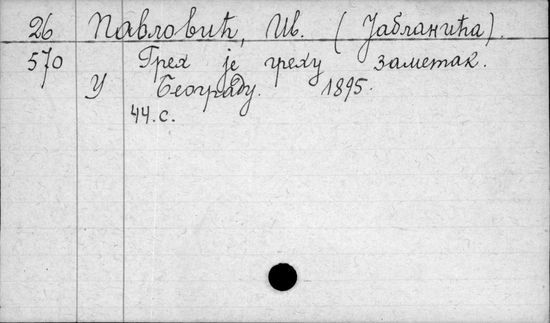 26 Павловић, Ив. (Јабланића).
570 Грех је греху заметак.
У Београду. 1895.
44.с.